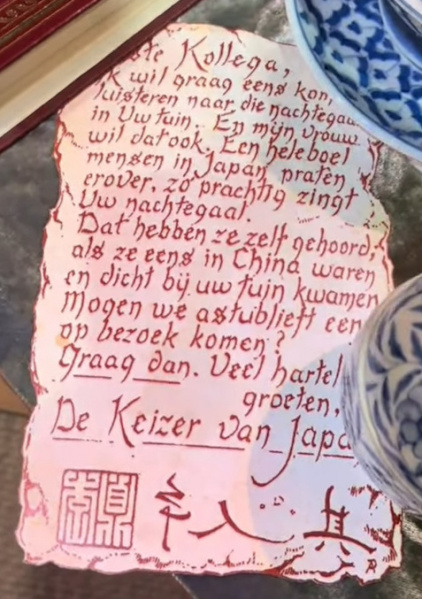 Kollega,
ik wil graag eens kon,
luisteren naar die nachtegaa
in Uw tuin. En mijn vrouw
wil dat ook. Een heleboel
mensen in Japan praten
erover, zo prachtig zingt
Uw nachtegaal.
Dat hebben ze zelf gehoord,
als ze eens in China waren
en dicht bij uw tuin kwamen
Mogen we astublieft een
op bezoek komen?
Graag dan. Veel hartel
groeten,
De Keizer van Japa